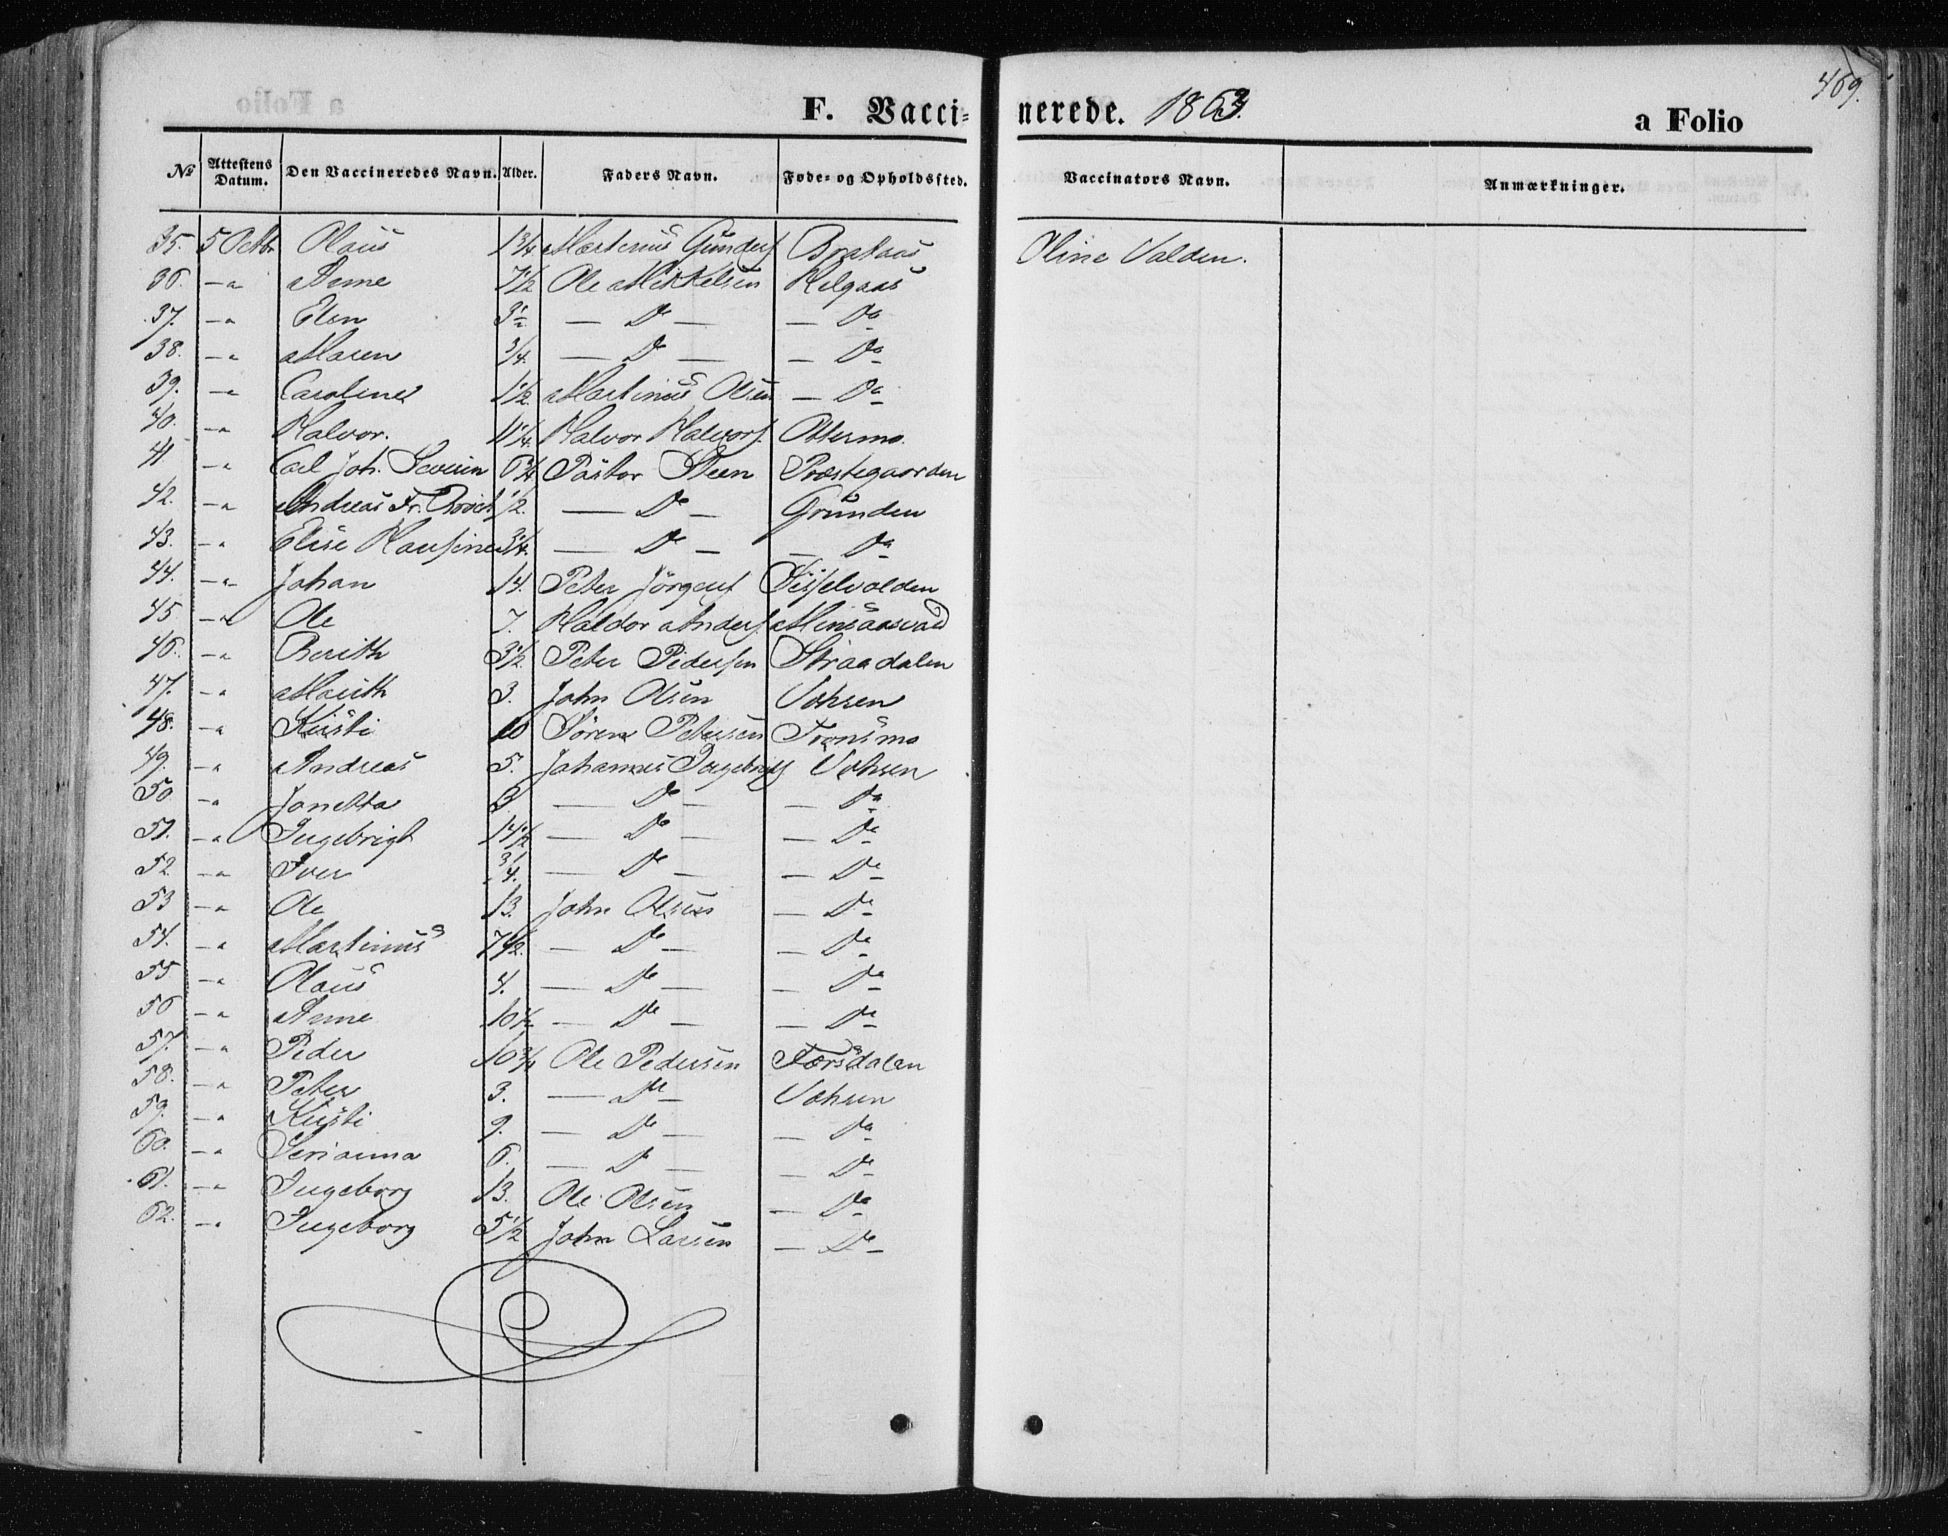 469.
F. Vaccinerede. 1863. a Folio
№ Attestens Datum. Den Vaccineredes Navn. Alder. Faders Navn. Føde- og Opholdssted. Vaccinators Navn. Anmærkninger.
35. 5 Octbr Olaus 1 3/4 Martinus Gunders Brataas Oline Valden.
36. —„ Anne 7 1/2 Ole Mikkelsen Helgaas
37. —„ Elen 3 1/2 — Do — — Do
38. —„ Maren 3/4. — Do — — Do
39. —„ Caroline 1 1/2 Martinus Olsen — Do
40. —„ Halvor. 1 1/4. Halvor Halvors. Ottermo.
41 —„ Carl Joh. Severin 6 3/4 Pastor Steen Præstegaarden
42. —„ Andreas Fr. 1/2 — Do — Grunden
43. —„ Elise — Do — — Do
44. —„ Johan 14. Peter Jörgens
45 —„ Ole 7. Haldor Anders.
46. —„ Berith 3 1/2 Peter Pedersen Straadalen
47. —„ Marith 3. John Olsen
48. —„ Kirsti 10 Sören Petersen Tronsmo
49. —„ Andreas 5. Johannes Ingebrigts
50 —„ Jonetta 3 — Do — — Do
51. —„ Ingebrigt 14 1/2 — Do — — Do
52. —„ Iver 3/4. — Do — — Do
53 —„ Ole 13. John Olsen — Do
54. —„ Martinus 7 1/2. — Do — — Do
55 —„ Olaus 4. — Do — — Do
56 —„ Anne 10 1/2 — Do — — Do
57. —„ Peder 10 3/4 Ole Pedersen Færsdalen
58. —„ Peter 3. — Do —
59. —„ Kirsti 9. — Do — — Do
60. —„ 6. — Do — — Do
61. —„ Ingeborg 13. Ole Olsen — Do
62. —„ Ingeborg 5 1/2 John Larsen — Do